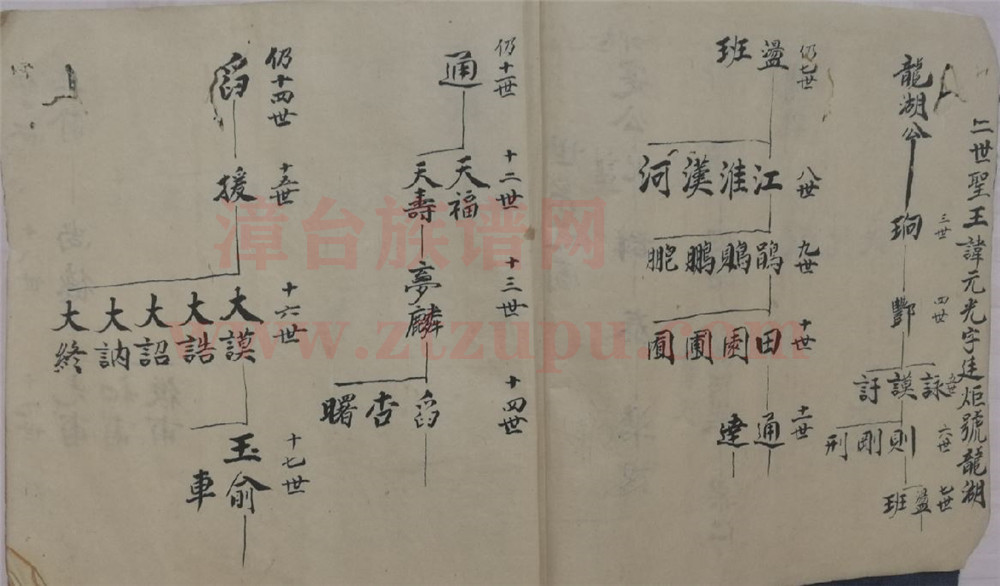 二世聖王諱元光字廷炬號龍湖
龍湖公
三世
珦
四世
酆
詠
謨
訏
六世
則
剛
刑
七世
盪
班
仍七世
盪
班
八世
江
淮
漢
河
九世
鵑
鵬
十世
田
圃
十一世
通
達
仍十一世
通
十二世
天福
天壽
十三世
夢麟
十四世
杏
曙
仍十四世
十五世
援
十六世
大謨
大誥
大詔
大訥
大終
十七世
玉俞
車
漳台族谱网
www.ztzupu.com